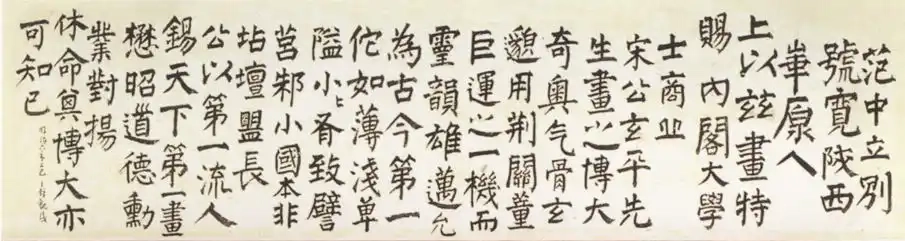 范中立別
號寬陝西
崋原人
上以茲畫特
賜內閣大學
士商丘
宋公玄平先
生畫之博大
奇奧气骨玄
邈用荆關董
巨運之一機而
靈韻雄邁允
為古今第一
佗如薄淺單
隘小〻肴致譬
莒邾小國本非
坫壇盟長
公以第一流人
錫天下第一畫
懋昭道德勳
業對揚
休命與博大亦
可知已